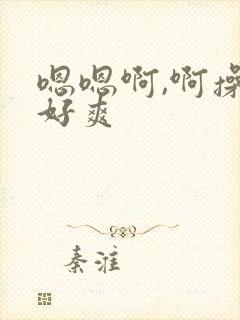 嗯嗯啊,啊操
好爽
秦淮